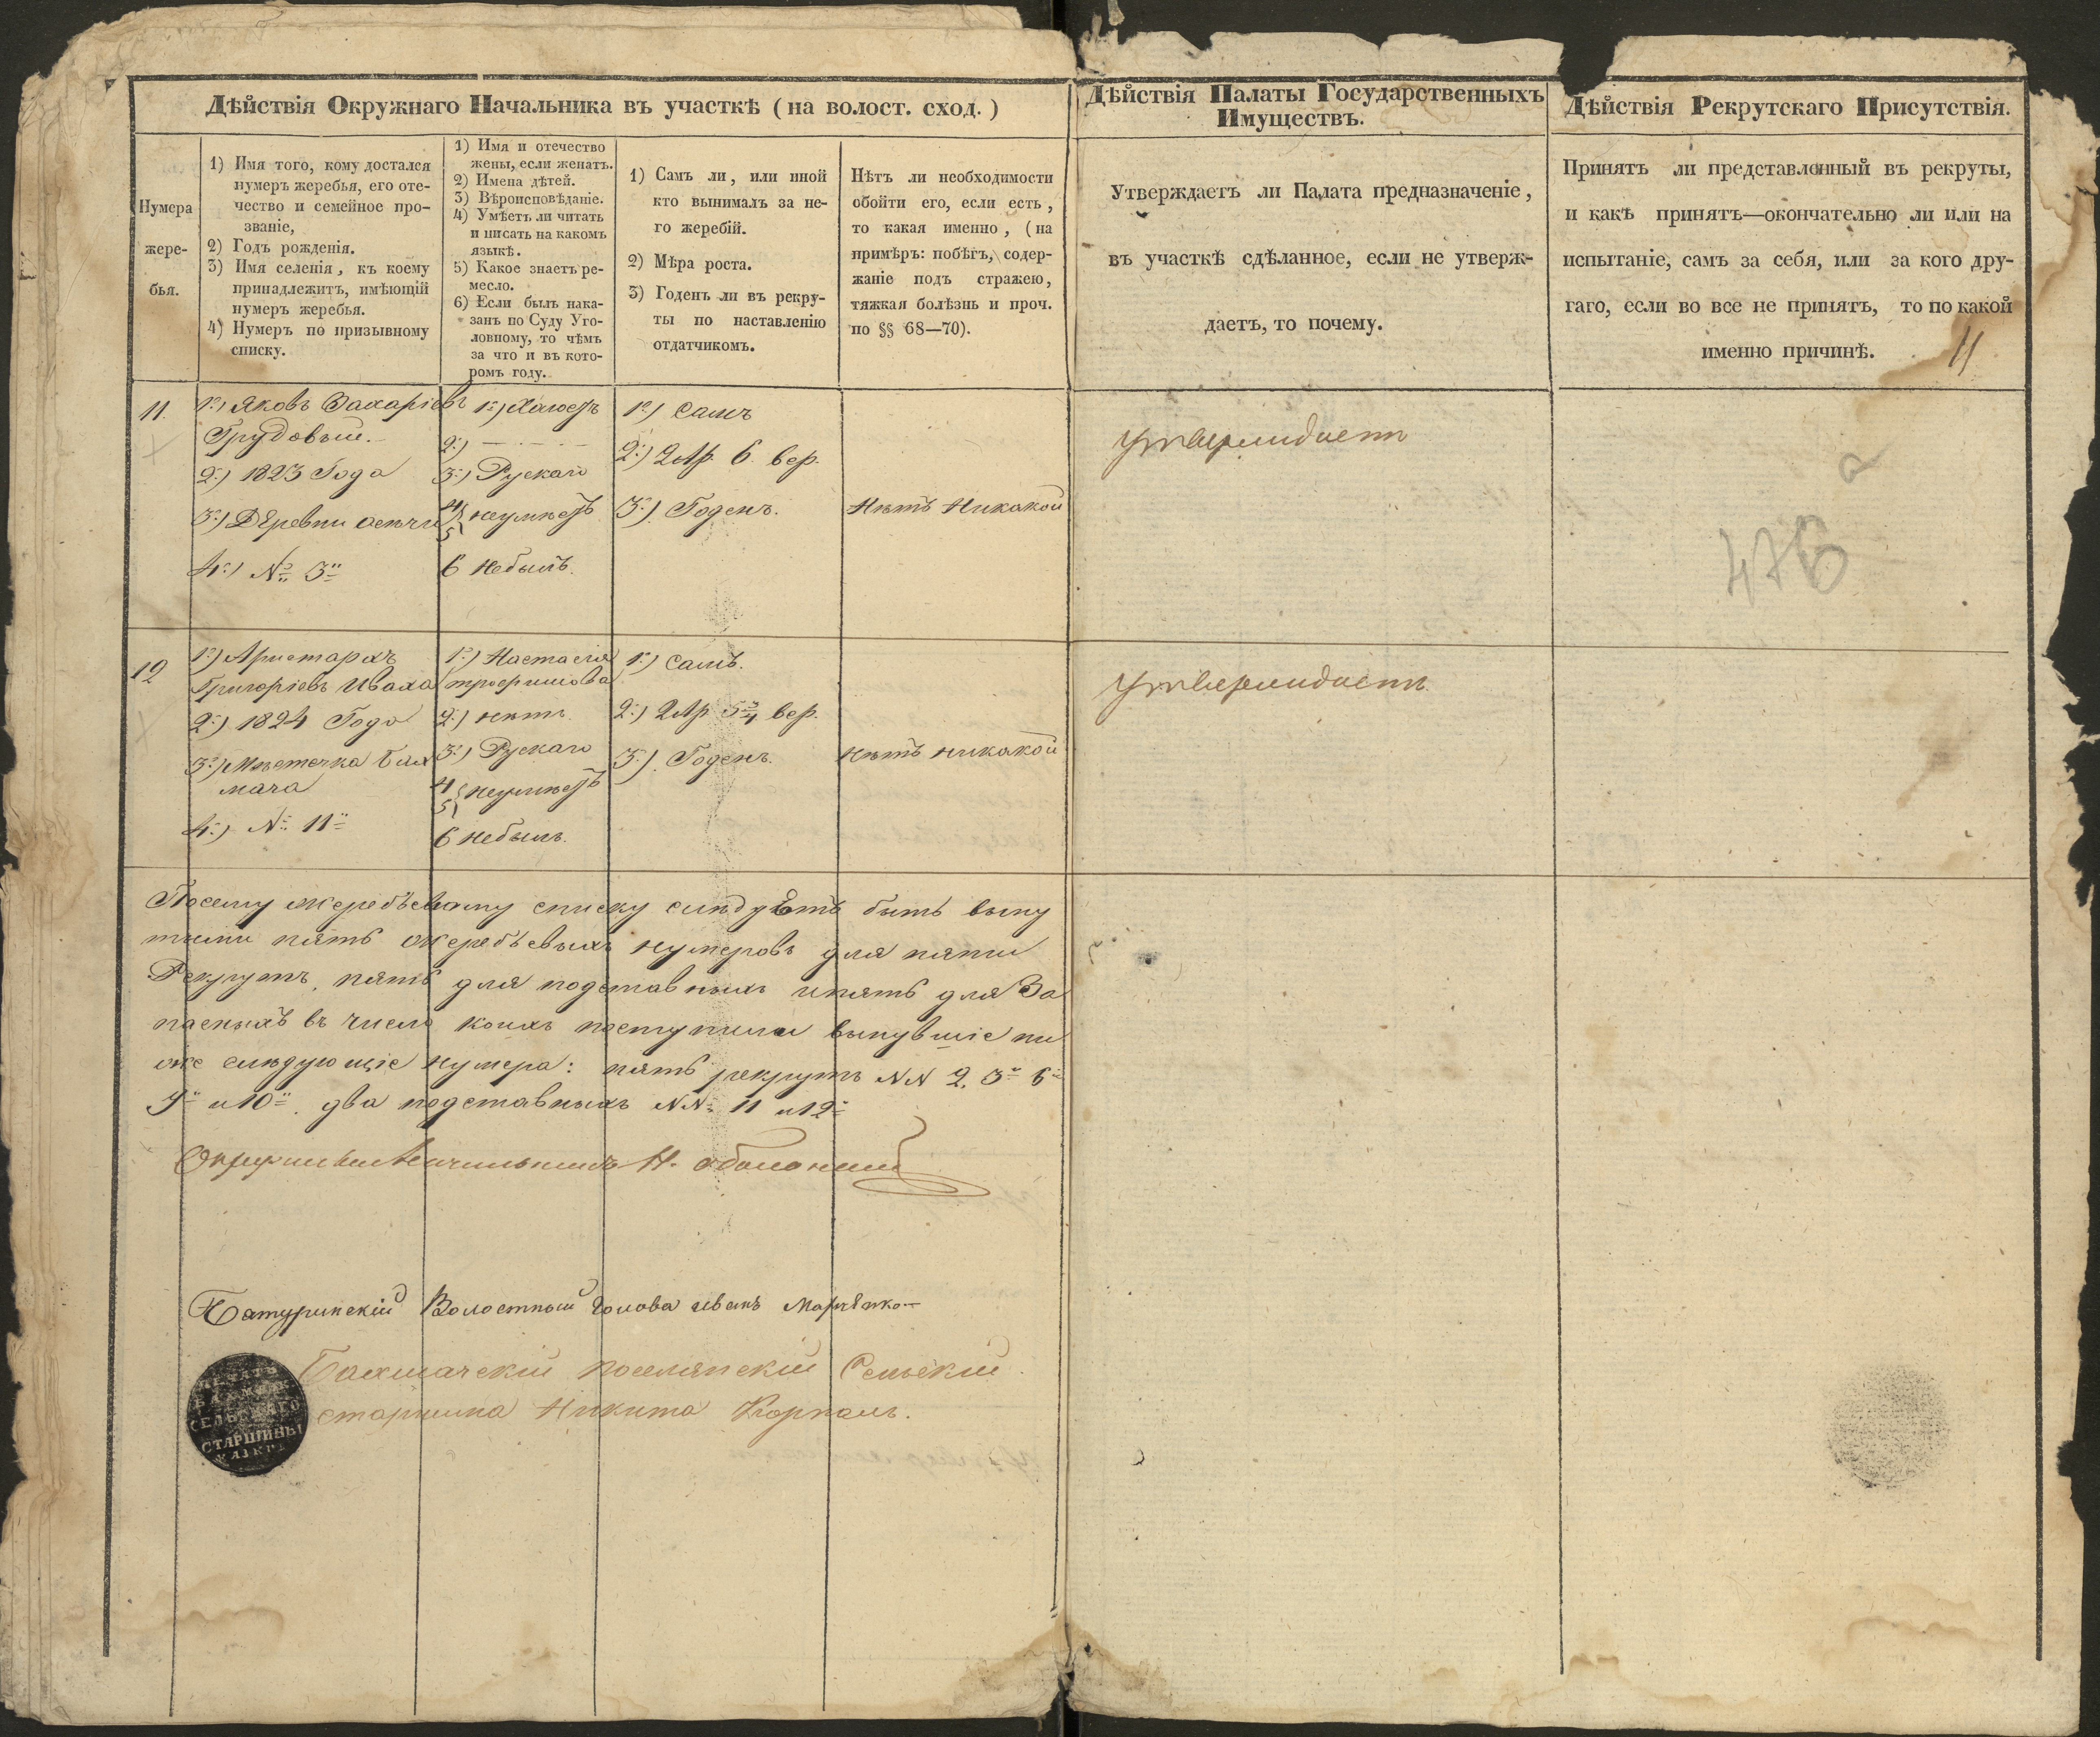 Дѣйствія Окружнаго Начальника въ участкѣ (на волост. сход.)
Нумера
жере-
бья.
1) Имя того, кому достался
нумеръ жеребья, его оте-
чество и семейное про-
званіе,
2) Годъ рожденія.
3) Имя селенія, къ коему
принадлежитъ, имѣющій
нумеръ жеребья.
4) Нумеръ по призывному
списку.
1) Имя и отечество
жены, если женатъ.
2) Имена дѣтей.
3) Вѣроисповѣданіе.
4) Умѣетъ ли читать
и писать на какомъ
языкѣ.
5) Какое знаетъ ре-
месло.
6) Если былъ нака-
занъ по Суду Уго-
ловному, то чѣмъ
за что и въ кото-
ромъ году.
1) Самъ ли, или иной
кто вынималъ за не-
го жеребій.
2) Мѣра роста.
3) Годенъ ли въ рекру-
ты по наставленію
отдатчикомъ.
Нѣтъ ли необходимости
обойти его, если есть,
то какая именно, (на
примѣръ: побѣгъ, содер-
жаніе подъ стражею,
тяжкая болѣзнь и проч.
по §§ 68—70).
Дѣйствія Палаты Государственныхъ
Имуществъ.
Утверждаетъ ли Палата предназначеніе,
въ участкѣ сдѣланное, если не утверж-
даетъ, то почему.
Дѣйствія Рекрутскаго Присутствія.
Принятъ ли представленный въ рекруты,
и какъ принятъ—окончательно ли или на
испытаніе, самъ за себя, или за кого дру-
гаго, если во все не принятъ, то по какой
именно причинѣ.
11
11.
1.) Яковъ Захаріевъ
Грудовый.
2.) 1823 Года
3.) Деревни
4.) № 3
1.) Холостъ
2.) — · — · —
3.) Рускаго
4
5 неумѣетъ
6 Небылъ.
1.) Самъ
2.) 2 Ар. 6 вер.
3.) Годенъ.
Нѣтъ Никакой
Утверждаетъ
476
12
1.) Аристархъ
Григоріевъ Иваха
2.) 1824 Года
3.) Мѣстечка Бах
мача
4.) № 11
1.) Настасія
2.) нѣтъ
3.) Рускаго
4
5 неумѣетъ
6 небылъ.
1.) Самъ.
2.) 2 Ар 5 3/4 вер.
3.) Годенъ.
нѣтъ никакой
Утверждаетъ.
Посему жеребьевому списку слѣдуетъ быть выну
тыми пять жеребьевыхъ нумеровъ для пяти
Рекрутъ, пять для подставныхъ ипять для За
пасныхъ въ число коихъ поступили вынувшіе ни
же слѣдующіе нумера: пять рекрутъ NN 2, 3 6
9 и 10. два подставныхъ NN: 11 и 12
Окружный Начальникъ Н.
Батуринскій Волостный голова иванъ Марченко
Бахмачскій поселянскій Сельскій
старшина Никита Корпанъ.
ПЕЧАТЬ
СЕЛЬСКАГО
СТАРШИНЫ